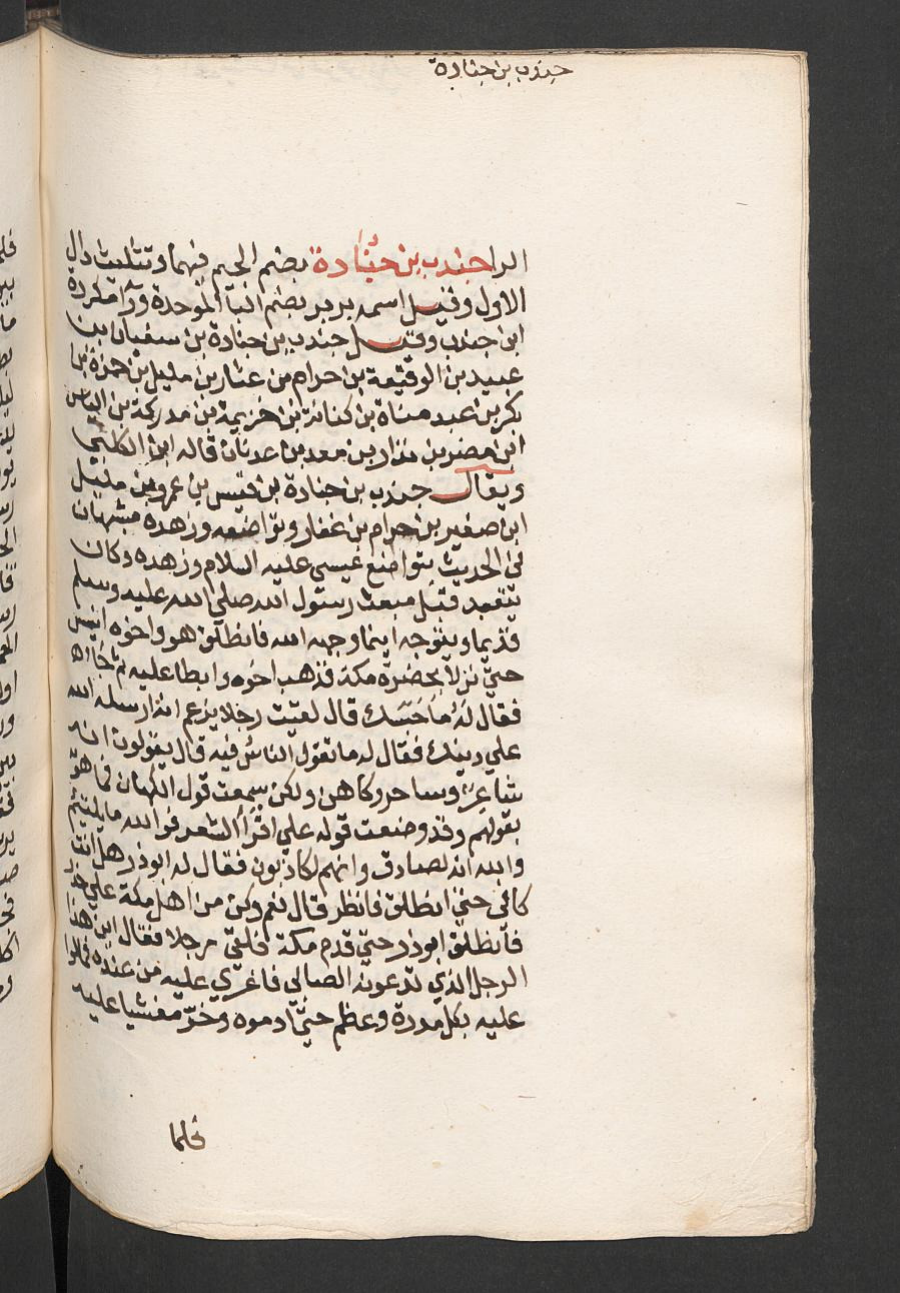 جندب بن جنادة
الرا جندب بن جُنَادة بضم الجيم فيهما وتثليث دال
الاول وقيل اسمه برير بضم البآ الموحدة ورآ مكررة
ابن جندب وقيل جندب بن جنادة بن سفيان بن
عبيد بن الوقيعة بن حرام بن غفار بن مليل بن حمزة بن
بكر بن عبد مناة بن كنانة بن خزيمة بن مدركة بن الياس
ابن مضر بن نزار بن معد بن عدنان قاله ابن الكلبي
ويقال جندب بن جنادة بن قيس بن عمرو بن مليل
ابن صغير بن حرام بن غفار وتواضعه وزهده مشبهان
في الحديث بتواضع عيسى عليه السلام وزهده وكان
يتعبد قبل مبعث رسول الله صلي الله عليه وسلم
قديما ويتوجه اينما وجهه الله فانطلق هو واخوه انيس
حتي نزلا بحضرة مكة فذهب اخوه وابطا عليه ثم جاآه
فقال لهُ ما حَبَسَك قال لقيت رجلا يزعم ان الله ارسله
علي دينك فقال له ما تقول الناس فيه قال يقولون انه
شاعر وساحر وكاهن ولكن سمعت قول الكهان فما هو
بقولهم وقد وضعت قوله علي اقرأ الشعر فوالله ما يلتيم
والله انه لصادق وانهم لكاذبون فقال له ابو ذر هل انت
كافي حتي انطلق فانظر قال نعم وكن من اهل مكة علي حذر
فانطلق ابو ذر حتي قدم مكة فلقي رجلا فقال اين هذا
الرجل الذي تدعونه الصابي فاغري عليه من عنده فمالوا
عليه بكل مدرة وعظم حتي ادموه وخرّ مغشيا عليه
فلما